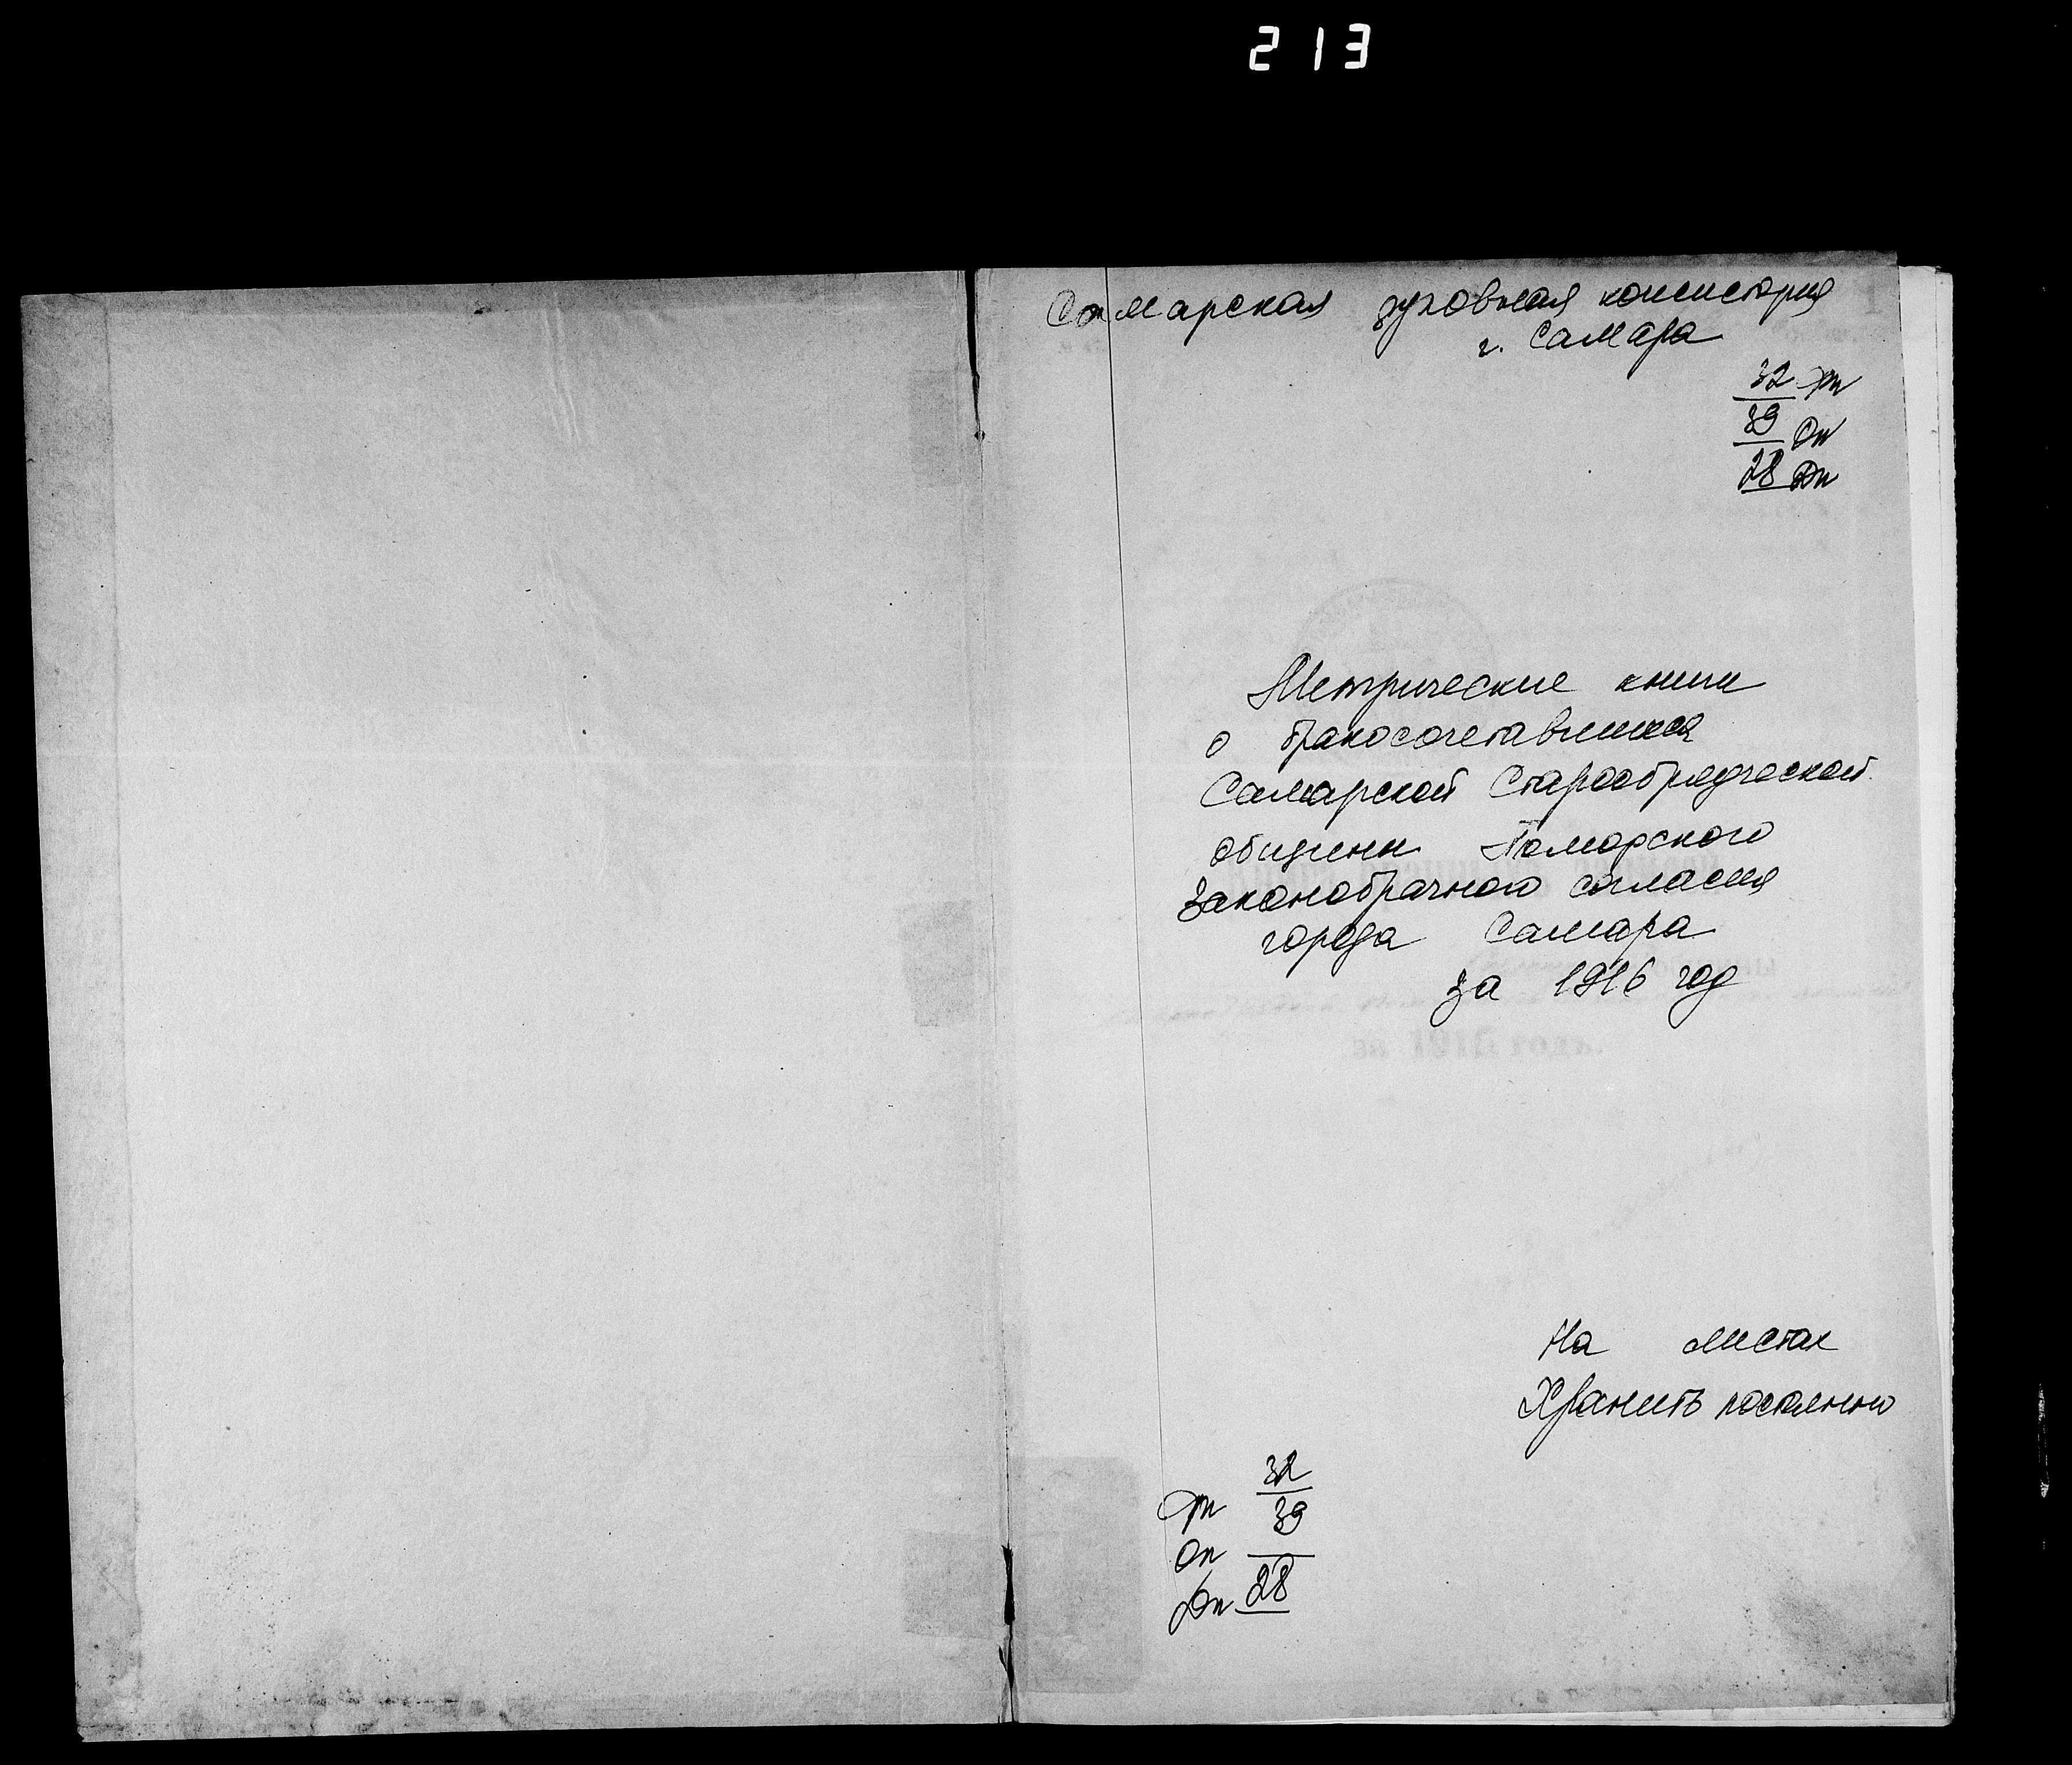 213
Самарская духовная консистория
г. Самара
32 Фн
39 Оп
28 Дп
Метрические книги
о бракосочетавшихся
Самарской Старообрядческой
общины Поморского
Законобрачного согласия
города Самара
за 1916 год
На листах
Хранить постоянно
Фн 32
Оп 39
Дп 28